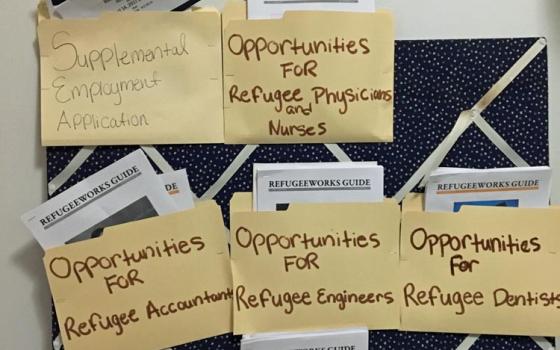 Supplemental
Employment
Application
Opportunities
FOR
Refugee Physicians
and
Nurses
REFUGEEWORKS GUIDE
Opportunities
FOR
Refugee Accountant
REFUGEEWORKS GUIDE
Opportunities
FOR
Refugee Engineers
REFUGEEWORKS GUIDE
Opportunities
For
Refugee Dentists
REFUGEEWORKS GUIDE